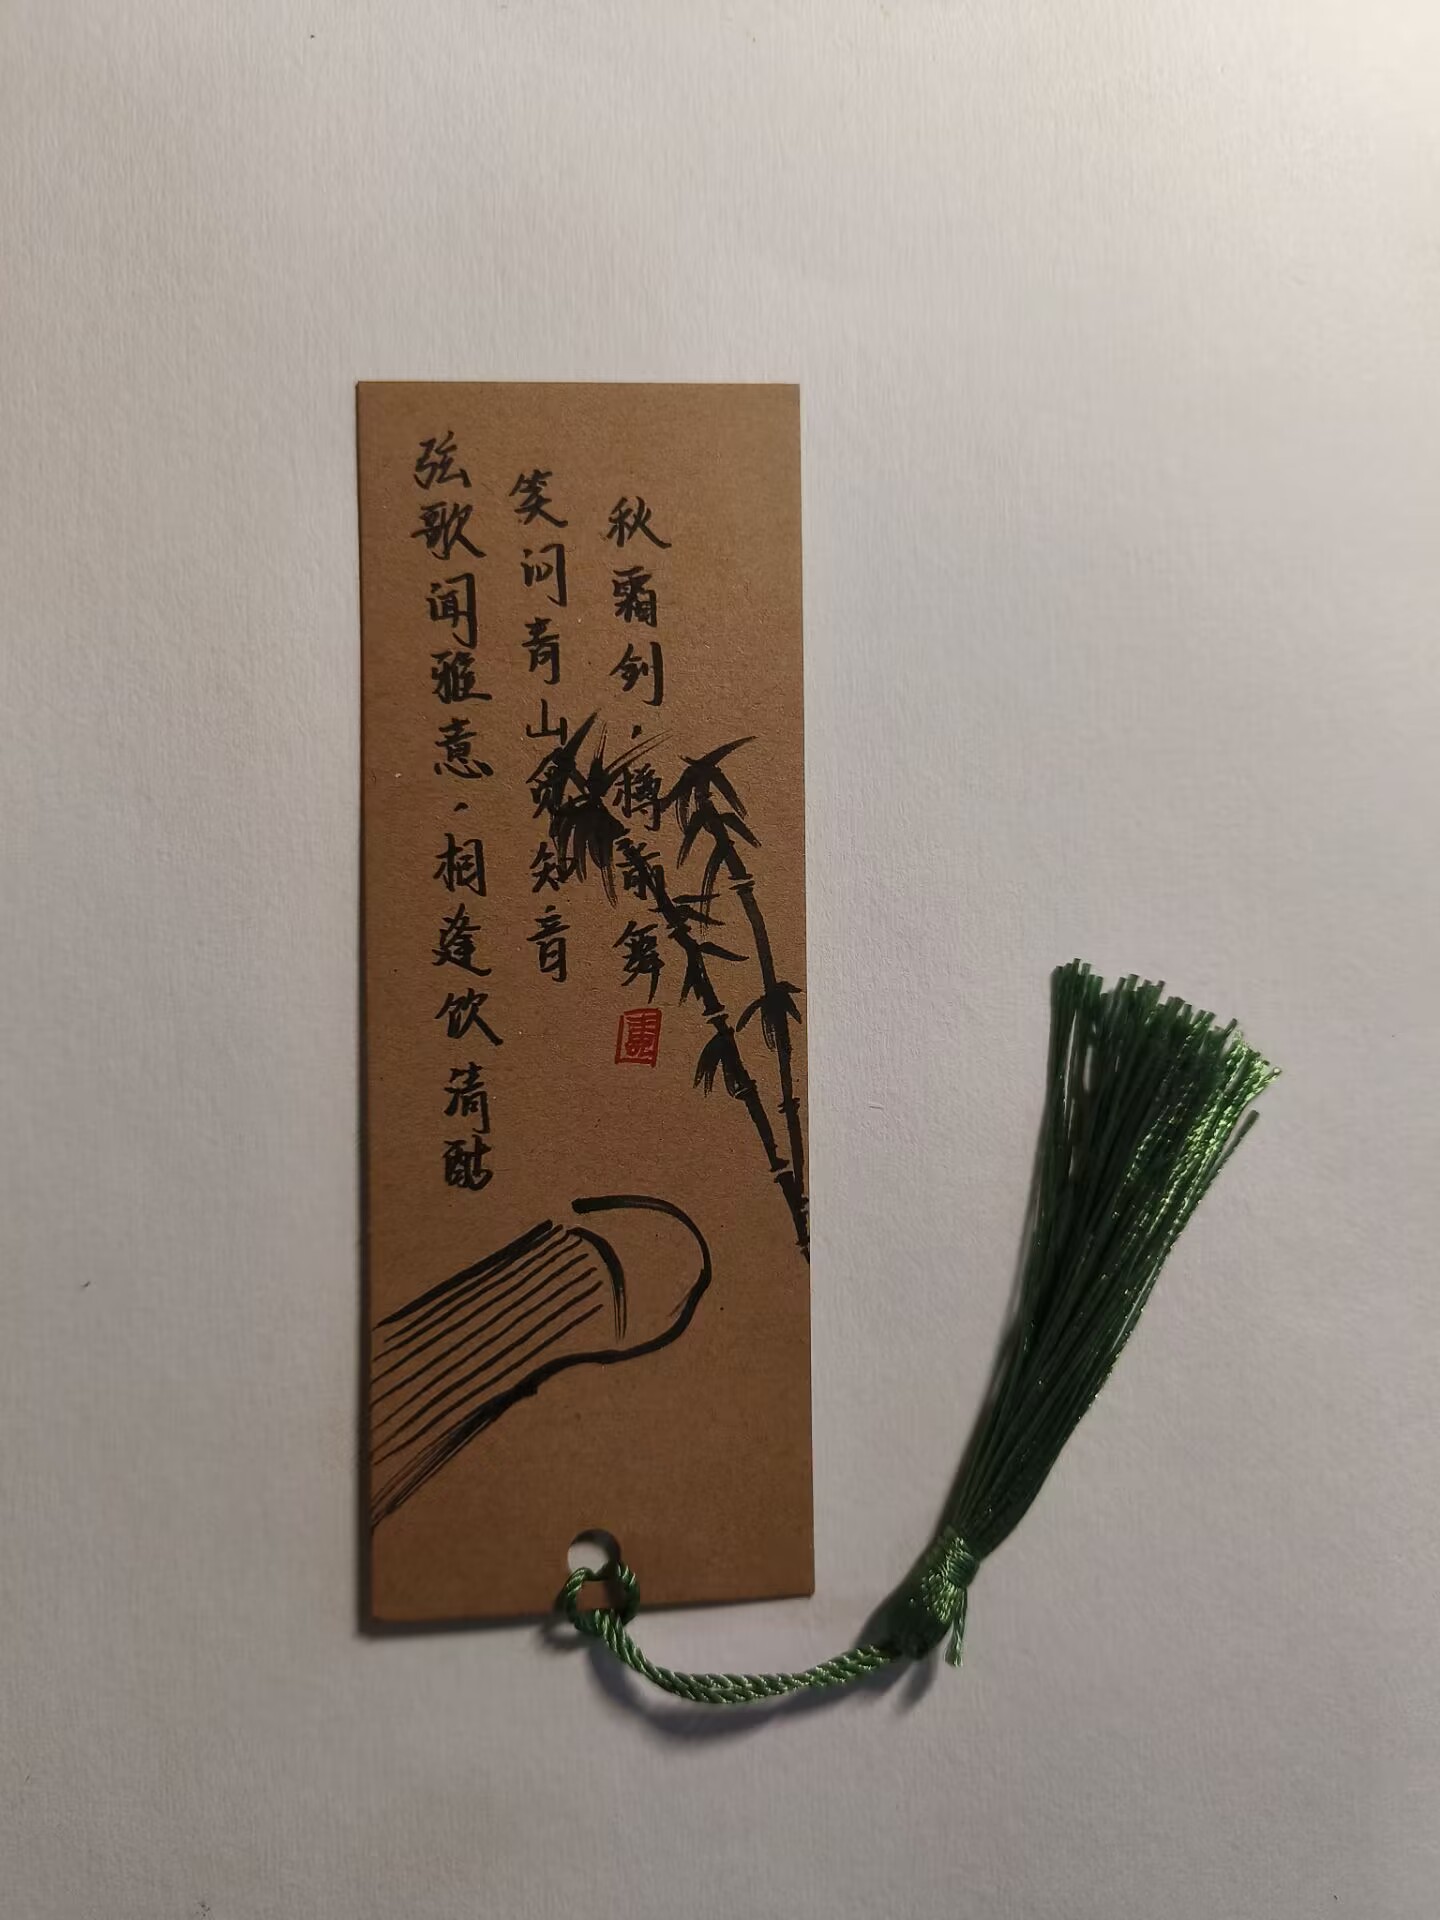 弦歌闻雅意，相逢饮清酤
笑问青山觅知音
秋霜剑，樽前舞